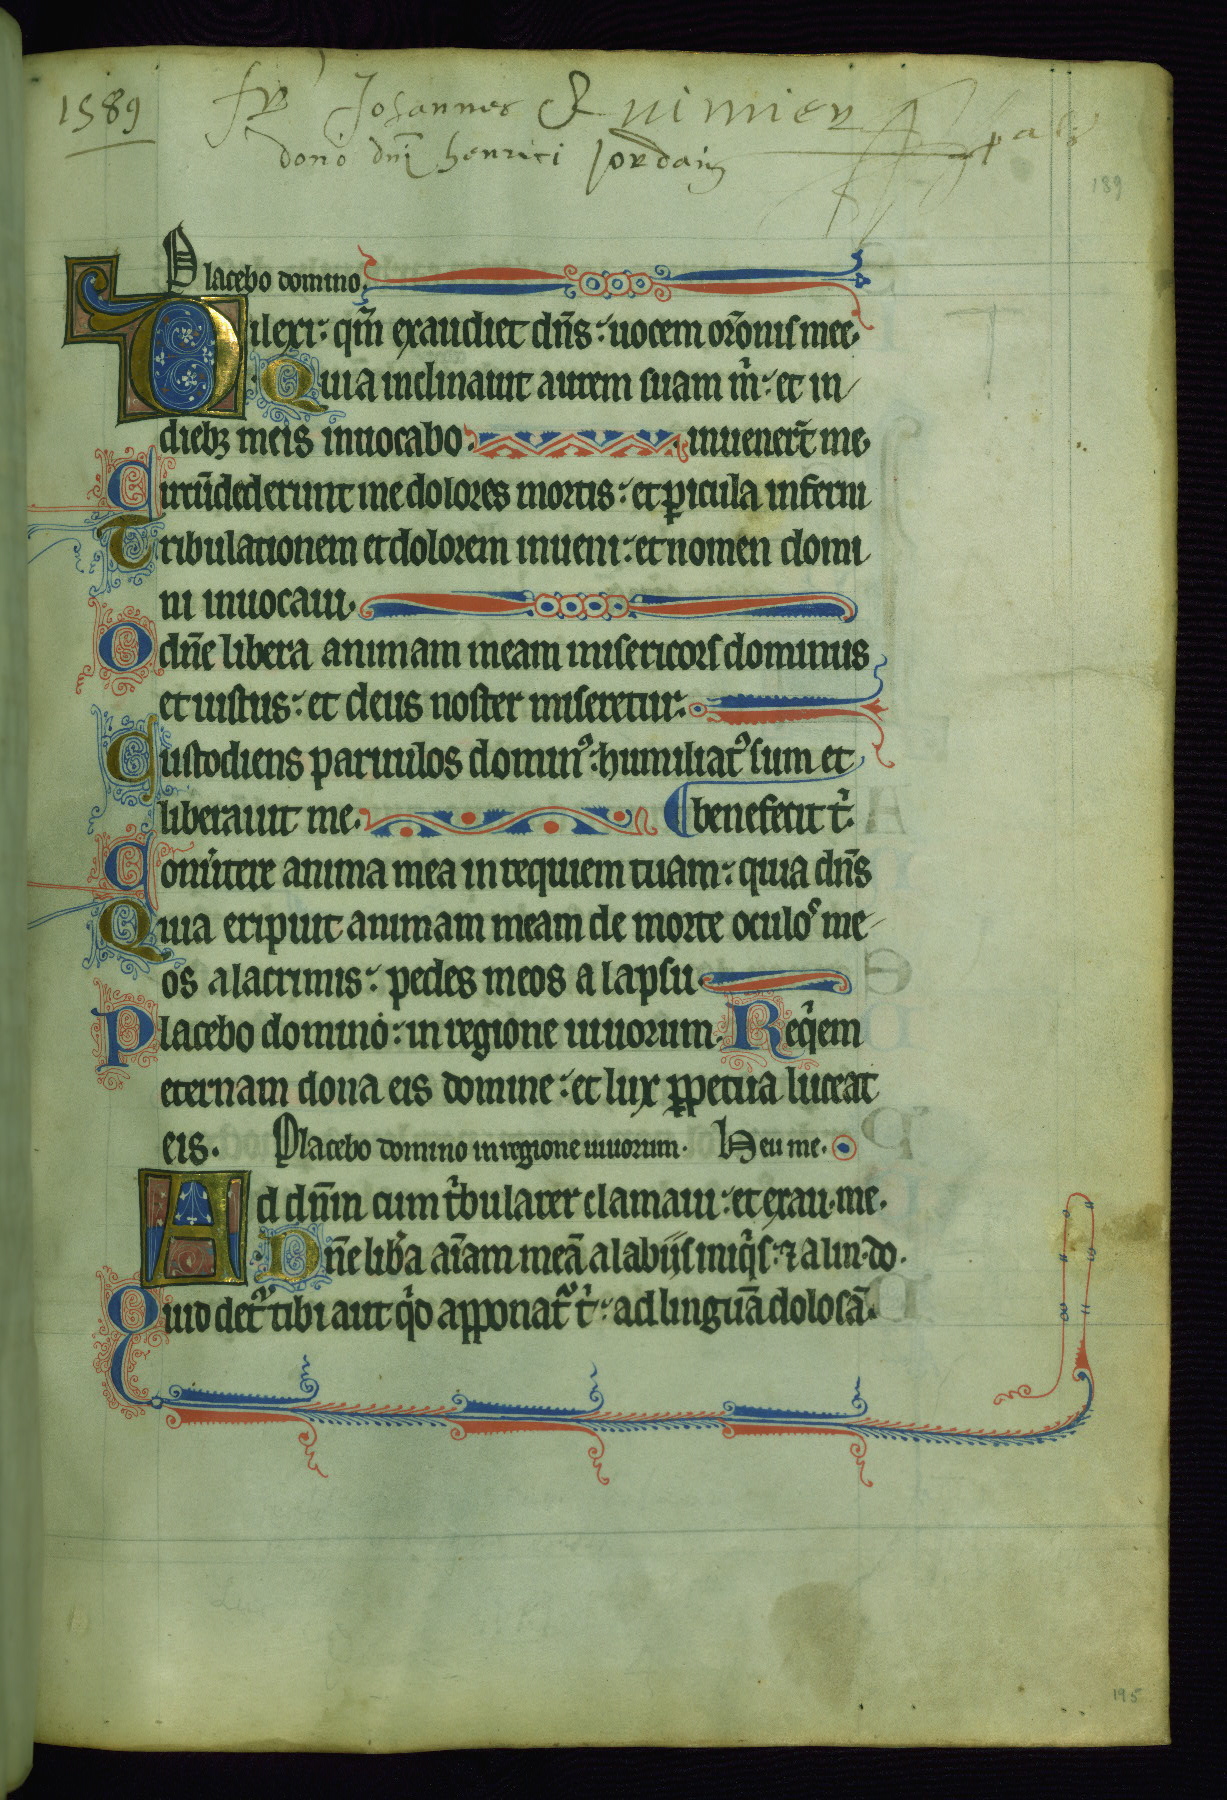 1589 fr Johannes Quimier
dono dni henrici Jordain
189
Placebo domino.
Dilexi: qm̄ exaudiet dn̄s: uocem or̄onis mee.
Quia inclinauit aurem suam m̄: et in
dieb; meis inuocabo. inuener̄t me.
Circūdederunt me dolores mortis: et pericula inferni
Tribulationem et dolorem inueni: et nomen domi
ni inuocaui.
O dn̄e libera animam meam misericors dominus
et iustus: et deus noster miseretur.
Custodiens paruulos domin⁹: humiliat⁹ sum et
liberauit me. benefecit t̄.
Conu̓tere anima mea in requiem tuam: quia dn̄s
Quia eripuit animam meam de morte oculoˢ me
os a lacrimis: pedes meos a lapsu.
Placebo domino: in regione uiuorum. Req̓em
eternam dona eis domine: et lux ꝑpetua luceat
eis. Placebo domino in regione uiuorum. Heu me.
Ad dn̄m cum t̓bularer clamaui: et exau. me.
Dn̄e lib̓a aīam meā a labijs iniq̓s: ⁊ a lin. do.
Quid det᷑ tibi aut q̓d apponat᷑ t̓: ad linguā dolosā.
195